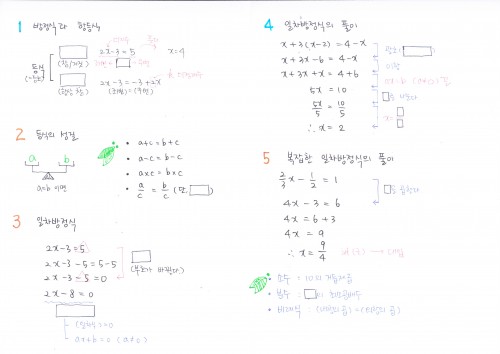 1 방정식과 항등식
등식
(~는다)
(참/거짓)
2x-3=5
x=4
(항상 참)
2x-3=-3+2x
(좌변)=(우변)
2 등식의 성질
a b
a=b 이면
• a+c=b+c
• a-c=b-c
• a×c=b×c
• a/c = b/c (단, )
3 일차방정식
2x-3=5
2x-3-5=5-5
2x-3-5=0
2x-8=0
(부호가 바뀐다)
(일차식)=0
ax+b=0 (a≠0)
4 일차방정식의 풀이
x+3(x-2)=4-x
x+3x-6=4-x
x+3x+x=4+6
5x=10
5x/5=10/5
∴x=2
괄호( )
이항
ax=b (a≠0) 꼴
x=
5 복잡한 일차방정식의 풀이
2/3x-1/2=1
4x-3=6
4x=6+3
4x=9
∴x=9/4
• 소수 = 10의 거듭제곱
• 분수 : 의 최소공배수
• 비례식 : (내항의 곱)=(외항의 곱)